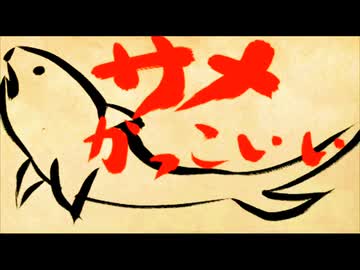 サメ
かっこいい